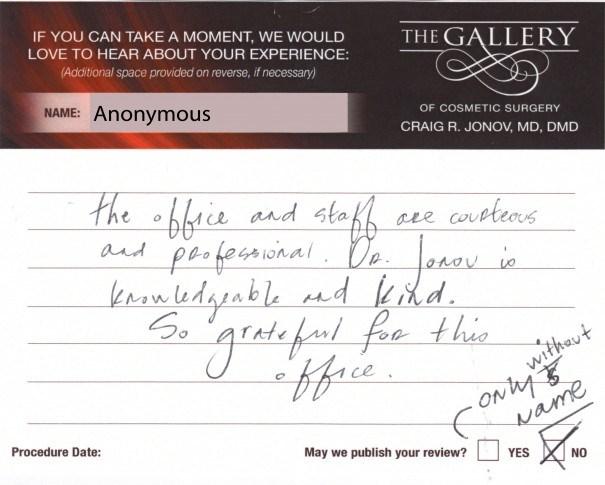 IF YOU CAN TAKE A MOMENT, WE WOULD
LOVE TO HEAR ABOUT YOUR EXPERIENCE:
(Additional space provided on reverse, if necessary)
NAME: Anonymous
THE GALLERY
OF COSMETIC SURGERY
CRAIG R. JONOV, MD, DMD
the office and staff are courteous
and professional. Dr. Jonov is
knowledgeable and kind.
So grateful for this
office.
only without
name
Procedure Date:
May we publish your review? YES NO